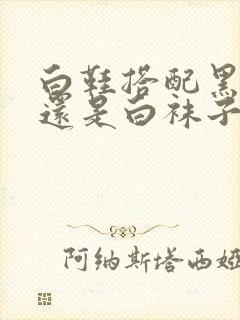 白鞋搭配黑
還是白袜子
阿纳斯塔西娅